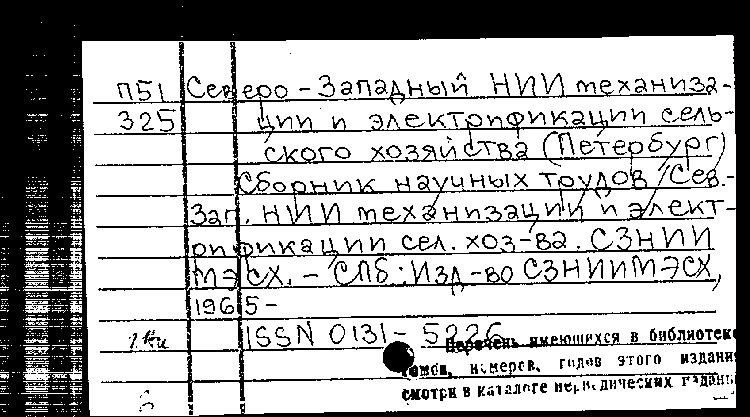 П51 Северо-Западный НИИ механиза-
325 ции и электрификации сель-
ского хозяйства (Петербург)
Сборник научных трудов / Сев.-
Зап. НИИ механизации и элект-
рификации сел. хоз-ва. СЗНИИ
МЭСХ. - СПб: Изд-во СЗНИИМЭСХ,
1965-
ISSN 0131-5226
Перечень имеющихся в библиотеке
томов, номеров, годов этого издания
смотри в каталоге периодических изданий